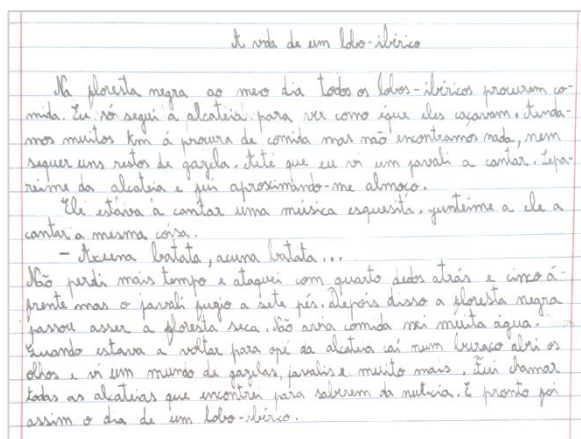 A vida de um lobo-ibérico
Na floresta negra ao meio dia todos os lobos-ibéricos procurem co-
mida. Eu só segui a alcateia para ver como éque eles caçavam. Anda-
mos muitos Km á procura de comida mas não encontramos nada, nem
sequer uns restos de gazela. Até que eu vi um javali a cantar. Sepa-
reime da alcateia e fui aproximando-me almoço.
Ele estava a cantar uma música esquesita. junteime a ele a
cantar a mesma coisa.
- Acuna batata, acuna batata...
Não perdi mais tempo e ataquei com quarto dedos atrás e cinco á-
frente mas o javali fugio a sete pés. Depois disso a floresta negra
passou asser a floresta seca. Não avia comida nei muita água.
Quando estava a voltar para opé da alcateia caí num buraco abri os
olhos e vi um mundo de gazelas, javalis e muito mais. Fui chamar
todas as alcateias que encontrei para saberem da nutícia. E pronto foi
assim o dia de um lobo-ibérico.